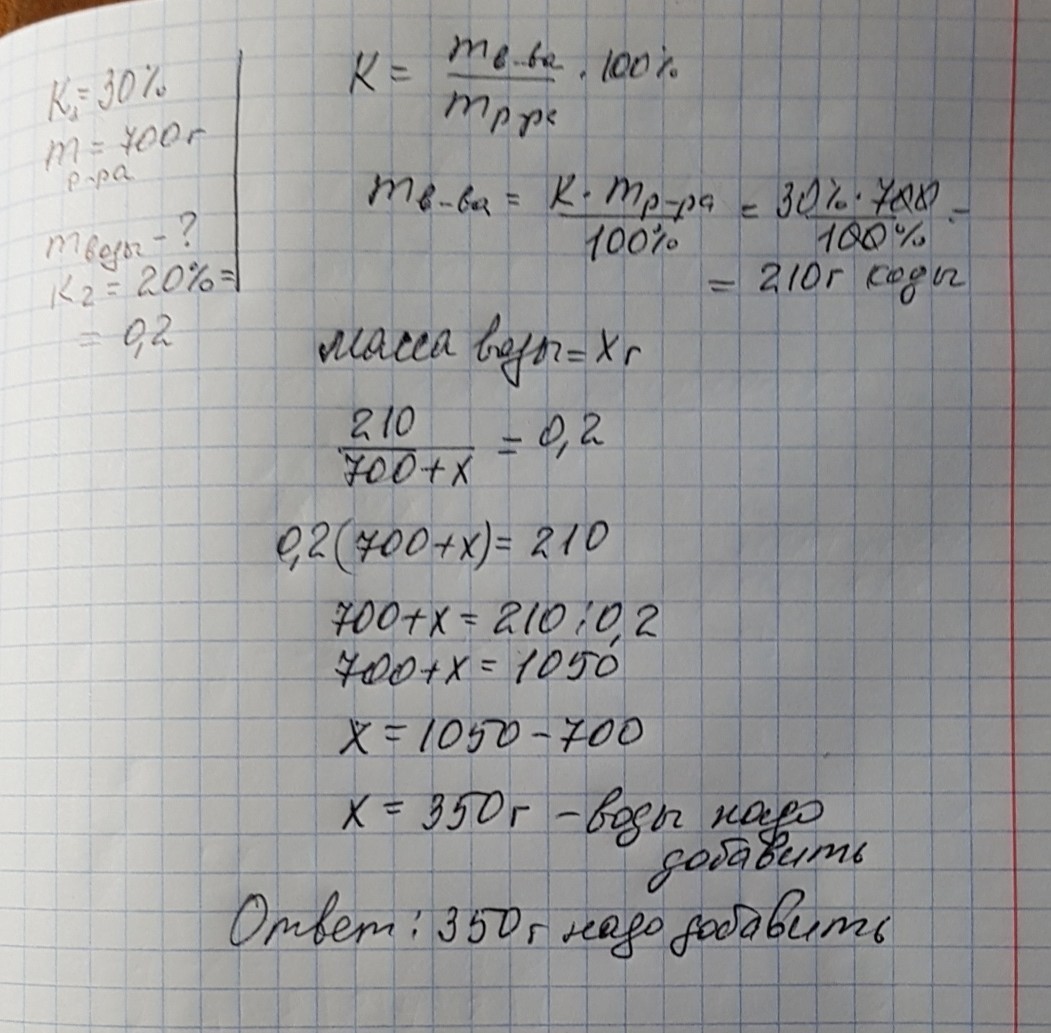 K₁ = 30%
m р-ра = 700г
m воды - ?
K₂ = 20% =
= 0,2
K = m в-ва / m р-ра · 100%
m в-ва = K · m р-ра / 100% = 30% · 700 / 100% =
= 210г соды
масса воды = x г
210 / 700+x = 0,2
0,2(700+x) = 210
700+x = 210:0,2
700+x = 1050
x = 1050 - 700
x = 350г - воды надо
добавить
Ответ: 350г надо добавить